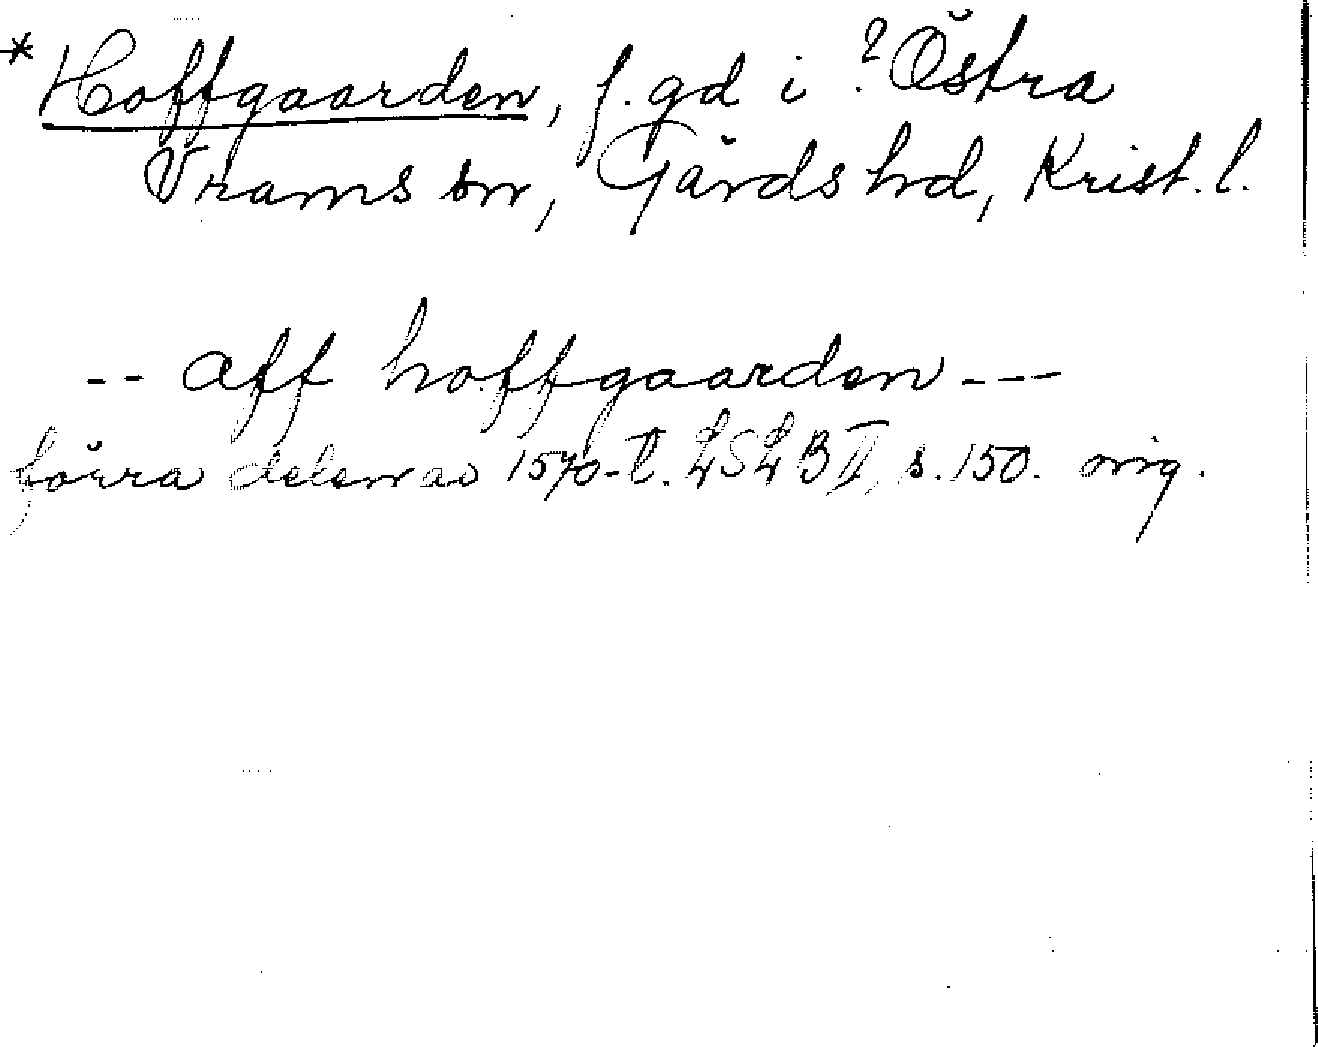 *Hoffgaarden, f. gd i ?Östra
Vrams sn, Gärds hd, Krist. l.
-- aff hoffgaarden ---
förra delen av 1570-t. LSLB II, s. 150. orig.